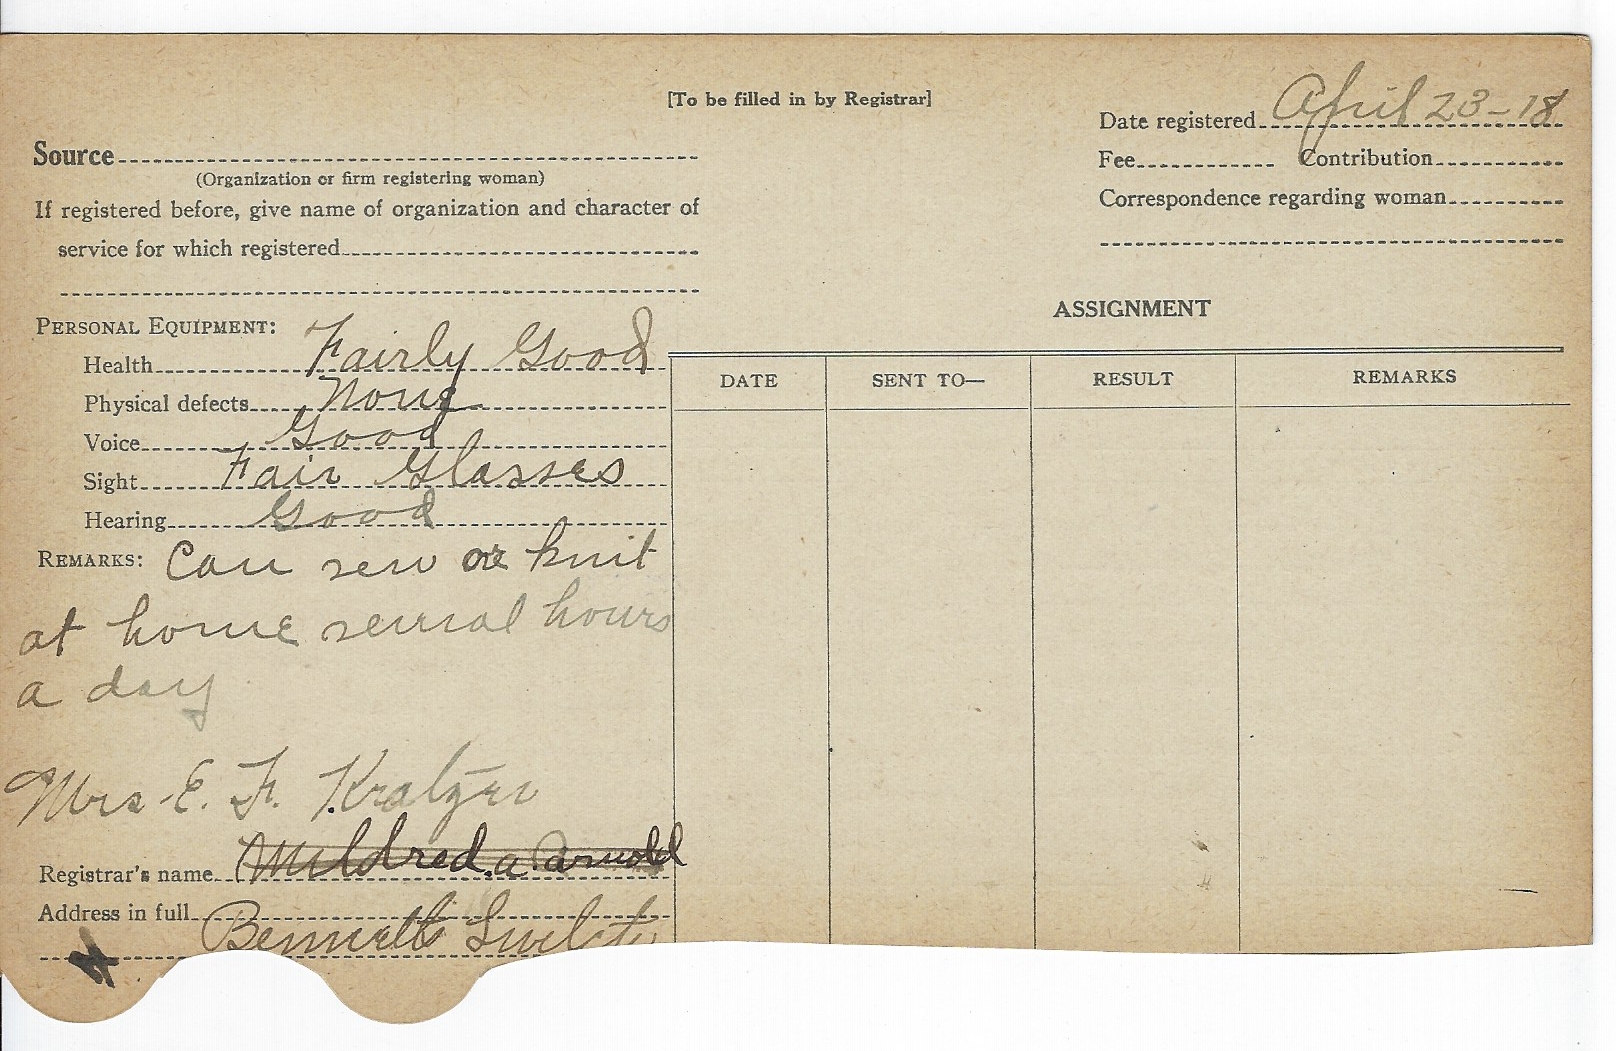 [To be filled in by Registrar]
Date registered April 23-18
Source
(Organization or firm registering woman)
Fee Contribution
If registered before, give name of organization and character of
service for which registered
Correspondence regarding woman
ASSIGNMENT
PERSONAL EQUIPMENT:
Health Fairly Good
Physical defects None
Voice Good
Sight Fair Glasses
Hearing Good
DATE SENT TO— RESULT REMARKS
REMARKS: Can sew or knit
at home several hours
a day
Mrs E. F.
Registrar's name Mildred. A. Arnold
Address in full